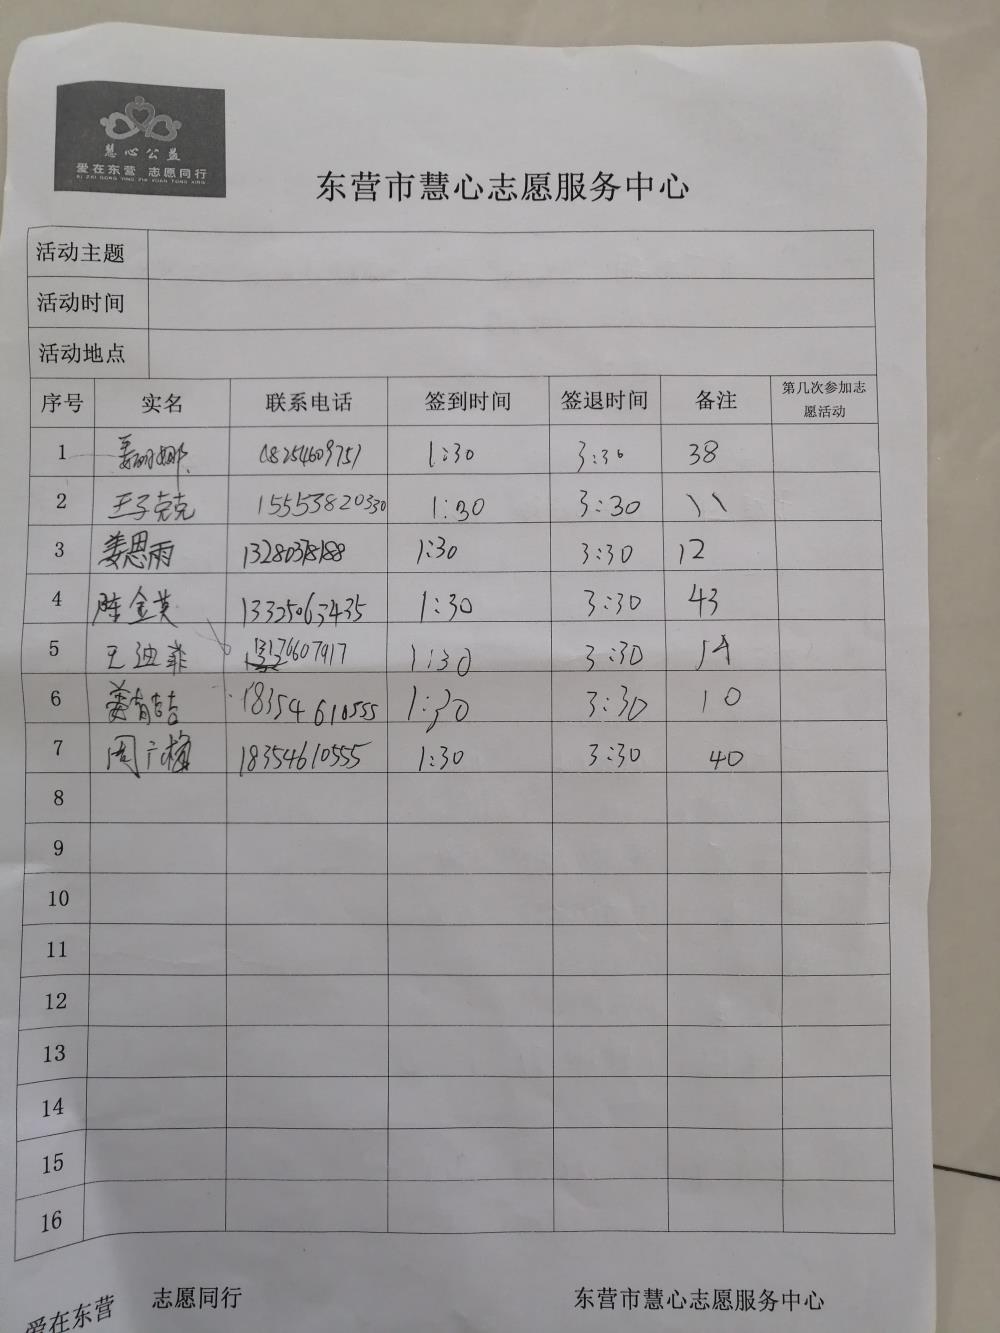 慧心公益
爱在东营 志愿同行
AI ZAI DONG YING ZHI YUAN TONG XING
东营市慧心志愿服务中心
活动主题
活动时间
活动地点
序号 实名 联系电话 签到时间 签退时间 备注 第几次参加志愿活动
1 姜丽娜 18254609751 1:30 3:30 38
2 王子克 15553820330 1:30 3:30 11
3 姜思雨 13280378188 1:30 3:30 12
4 陈金英 13325063435 1:30 3:30 43
5 王迪菲 13176607917 1:30 3:30 14
6 18354610555 1:30 3:30 10
7 周广梅 18354610555 1:30 3:30 40
8
9
10
11
12
13
14
15
16
爱在东营 志愿同行 东营市慧心志愿服务中心